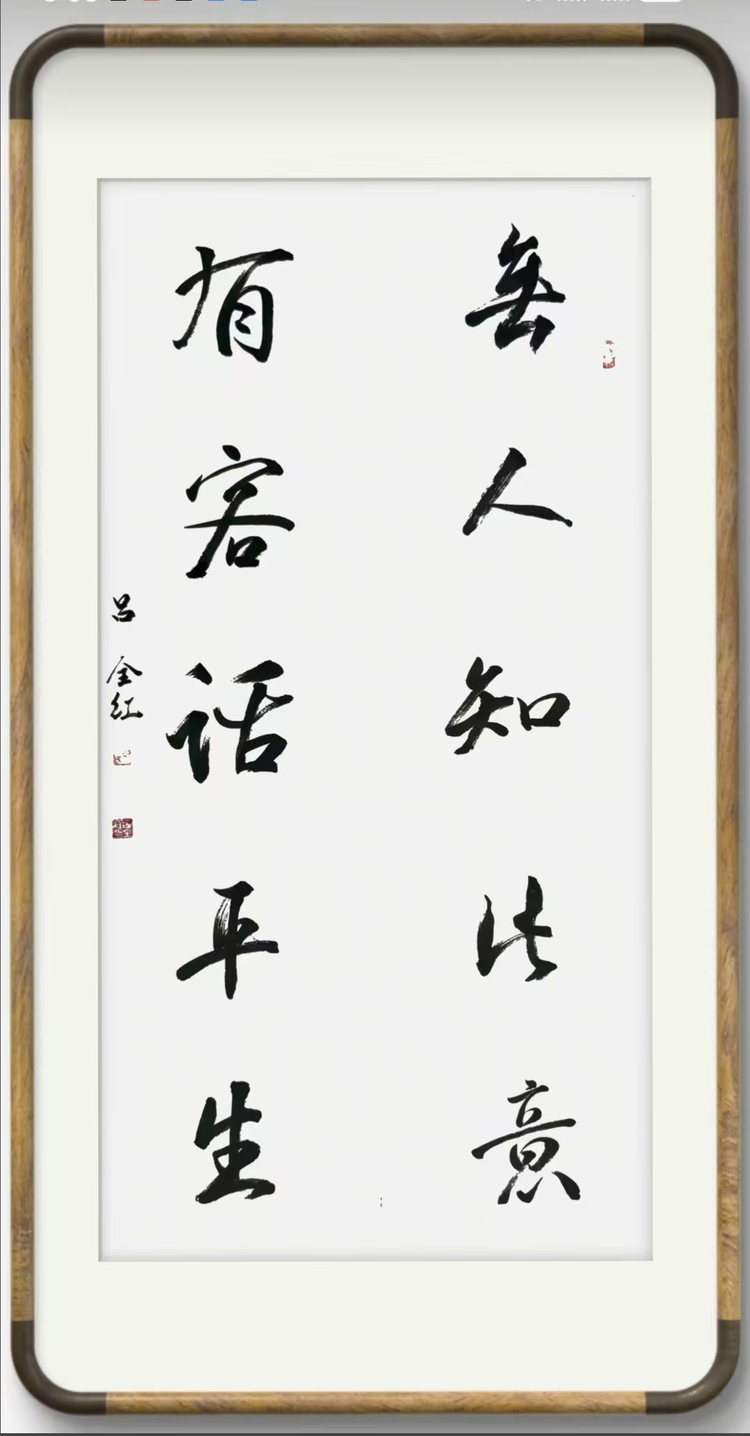 無人知此意
有客話平生
吕金紅